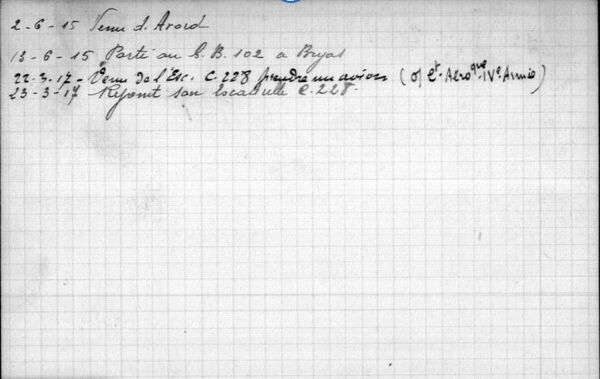 2-6-15 Venu d. Avord
13-6-15 Parti au G.B. 102 a Bryas
22-3-17- Venu de l'Esc. C.228 prendre un avion (o/ Ct. Aéroque IVe Armée)
23-3-17 Rejoint son Escadrille C.228.